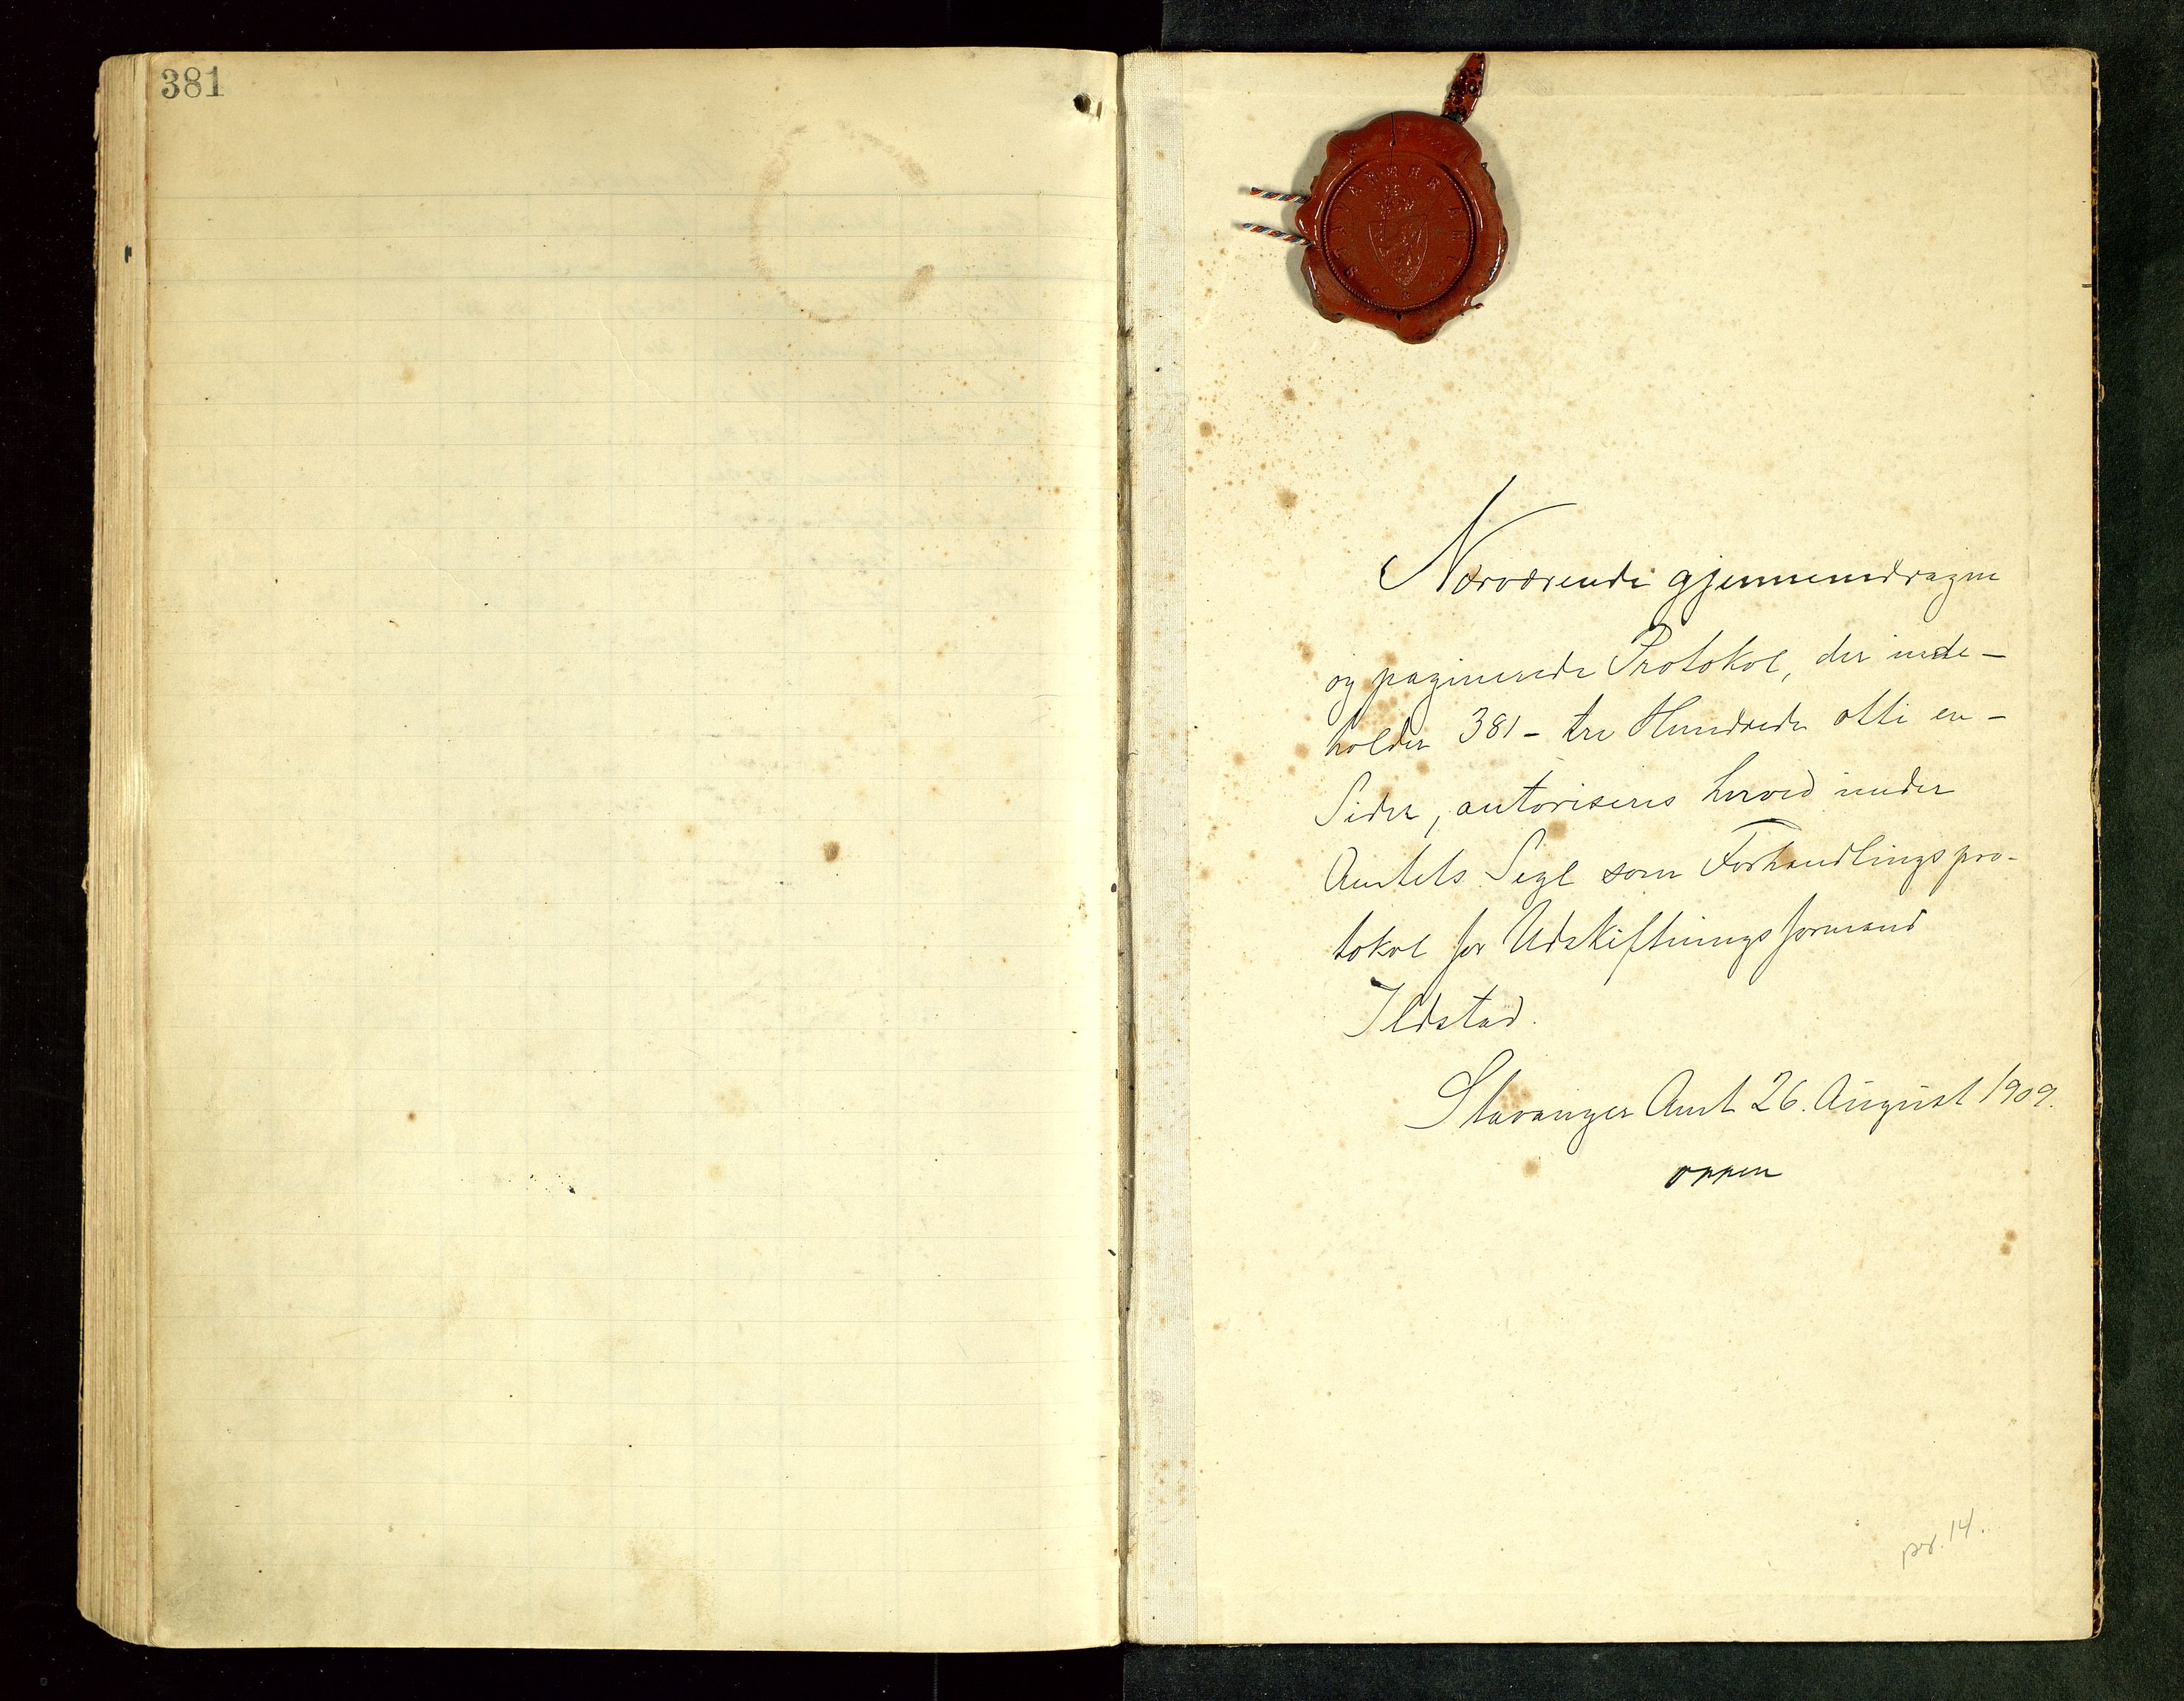 381
Nærværende gjennemdragne
og paginerede Protokol, der inde-
holder 381 - tre Hundrede otti en -
Sider, autoriseres herved under
Amtets Segl som Forhandlingspro-
tokol for Udskiftningsformand
Ildstad.
Stavanger Amt 26. August 1909.
Oppen